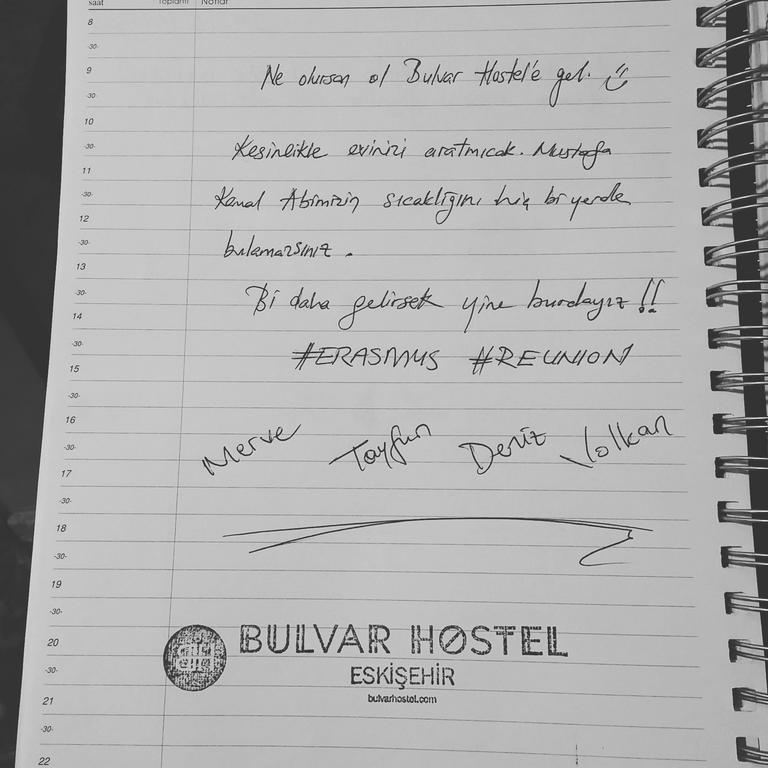 saat Toplantı Notlar
8
-30-
9
Ne olursan ol Bulvar Hostel'e gel.
-30-
10
-30-
Kesinlikle evinizi aratmıcak. Mustafa
11
-30-
Kemal Abimizin sıcaklığını hiç bi yerde
12
-30-
bulamazsınız.
13
-30-
Bi daha gelirsek yine burdayız!!
14
-30-
#ERASMUS #REUNION
15
-30-
16
Merve Tayfun Deniz Volkan
-30-
17
-30-
18
-30-
19
-30-
20
BULVAR HØSTEL
ESKİŞEHİR
-30-
bulvarhostel.com
21
-30-
22